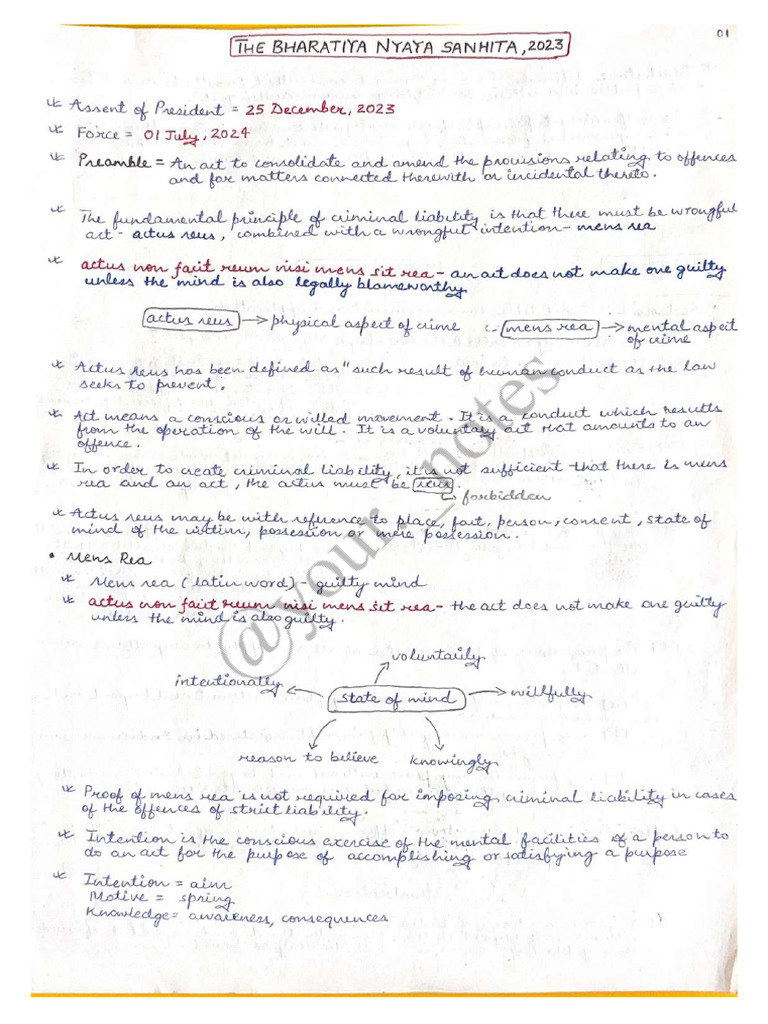 01
THE BHARATIYA NYAYA SANHITA, 2023
Assent of President = 25 December, 2023
Force = 01 July, 2024
Preamble = An act to consolidate and amend the provisions relating to offences
and for matters connected therewith or incidental thereto.
The fundamental principle of criminal liability is that there must be wrongful
act - actus reus, combined with a wrongful intention - mens rea
actus non fait reum nisi mens sit rea - an act does not make one guilty
unless the mind is also legally blameworthy
actus reus → physical aspect of crime mens rea → mental aspect
of crime
Actus reus has been defined as "such result of human conduct as the law
seeks to prevent.
Act means a conscious or willed movement. It is a conduct which results
from the operation of the will. It is a voluntary act that amounts to an
offence.
In order to create criminal liability, it is not sufficient that there is mens
rea and an act, the actus must be reus.
forbidden
Actus reus may be with reference to place, fact, person, consent, state of
mind of the victim, possession or mere possession.
• Mens Rea
Mens rea (latin word) - guilty mind
actus non fait reum nisi mens set rea - the act does not make one guilty
unless the mind is also guilty.
voluntarily
intentionally
state of mind → willfully
reason to believe knowingly
Proof of mens rea is not required for imposing criminal liability in cases
of the offences of strict liability.
Intention is the conscious exercise of the mental facilities of a person to
do an act for the purpose of accomplishing or satisfying a purpose
Intention = aim
Motive = spring
Knowledge = awareness, consequences
@your_notes